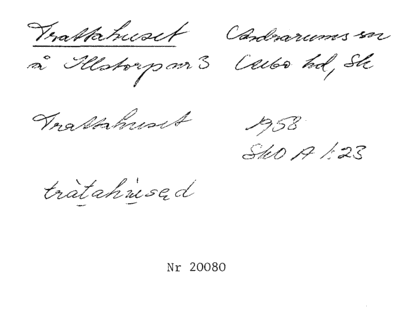 Trattahuset Andrarums sn
å Illstorp nr 3 Albo hd, Sk
Trattahuset 1958
SkO A 1:23
tràtahùsəd
Nr 20080